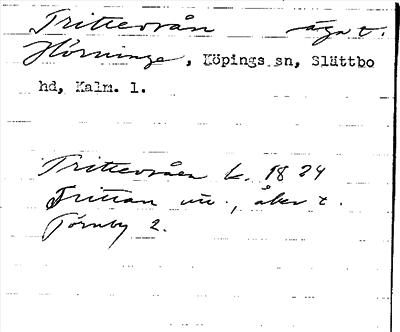 Trittevrån äga t.
Hörninge, Köpings sn, Slättbo
hd, Kalm. l.
Trittevråen k. 1824
Trittan utr., åker t.
Törnby 2.